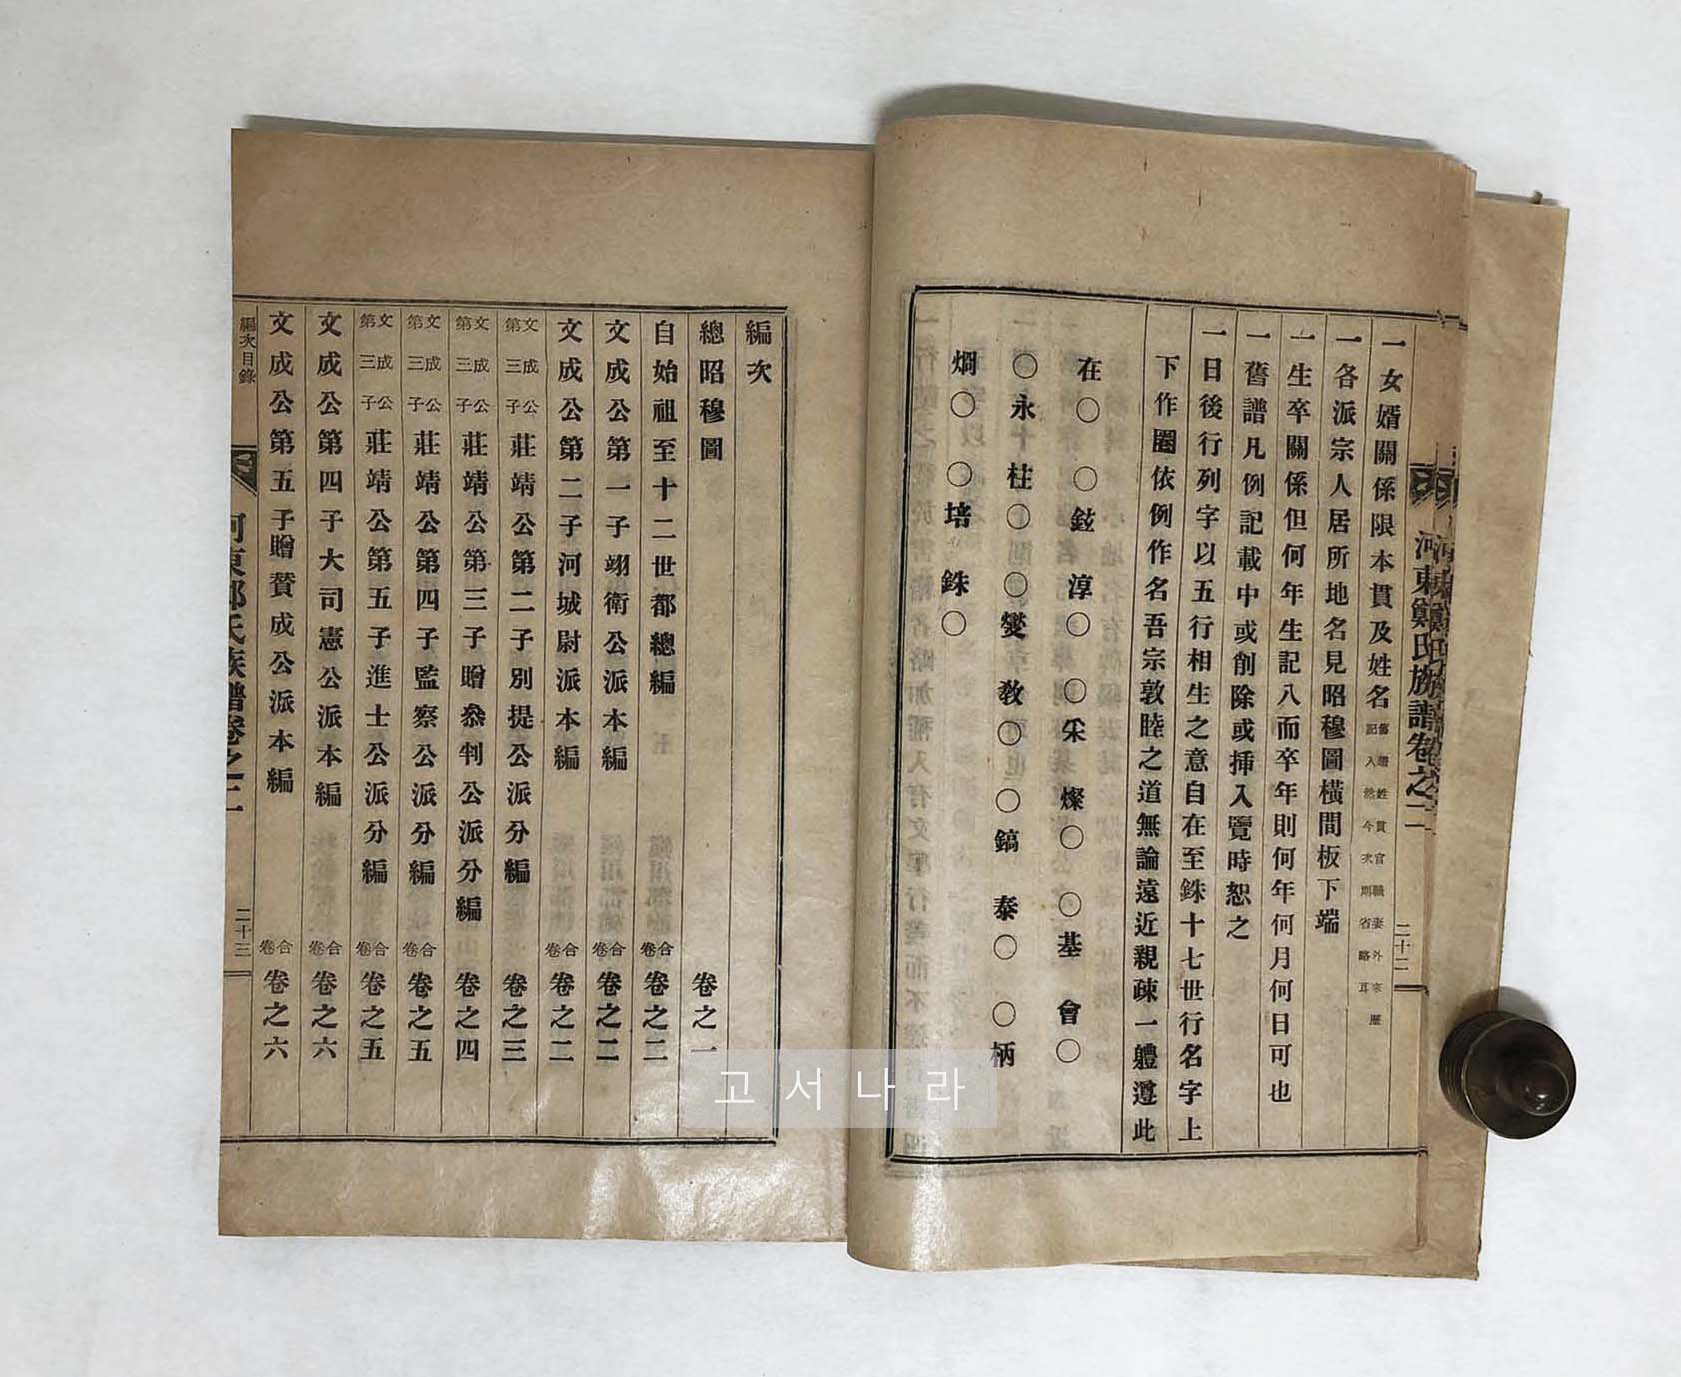 河東鄭氏族譜卷之一
二十二
一女婿關係限本貫及姓名舊譜姓貫官職妻外家歷記入然今次則省略耳
一各派宗人居所地名見昭穆圖橫間板下端
一生卒關係但何年生記入而卒年則何年何月何日可也
一舊譜凡例記載中或削除或挿入覽時恕之
一日後行列字以五行相生之意自在至銖十七世行名字上
下作圈依例作名吾宗敦睦之道無論遠近親疎一軆遵此
在〇 〇鉉 淳〇 〇采 燦〇 〇基 會〇
〇永十柱〇 〇燮 敎〇 〇鎬 泰〇 〇柄
烱〇 〇培 銖〇
編次
總昭穆圖 卷之一
自始祖至十二世都總編 合卷 卷之二
文成公第一子翊衛公派本編 合卷 卷之二
文成公第二子河城尉派本編 合卷 卷之二
文成公第三子 莊靖公第二子別提公派分編 卷之三
文成公第三子 莊靖公第三子贈叅判公派分編 卷之四
文成公第三子 莊靖公第四子監察公派分編 合卷 卷之五
文成公第三子 莊靖公第五子進士公派分編 合卷 卷之五
文成公第四子大司憲公派本編 合卷 卷之六
文成公第五子贈贊成公派本編 合卷 卷之六
編次目錄
河東鄭氏族譜卷之一
二十三
고서나라